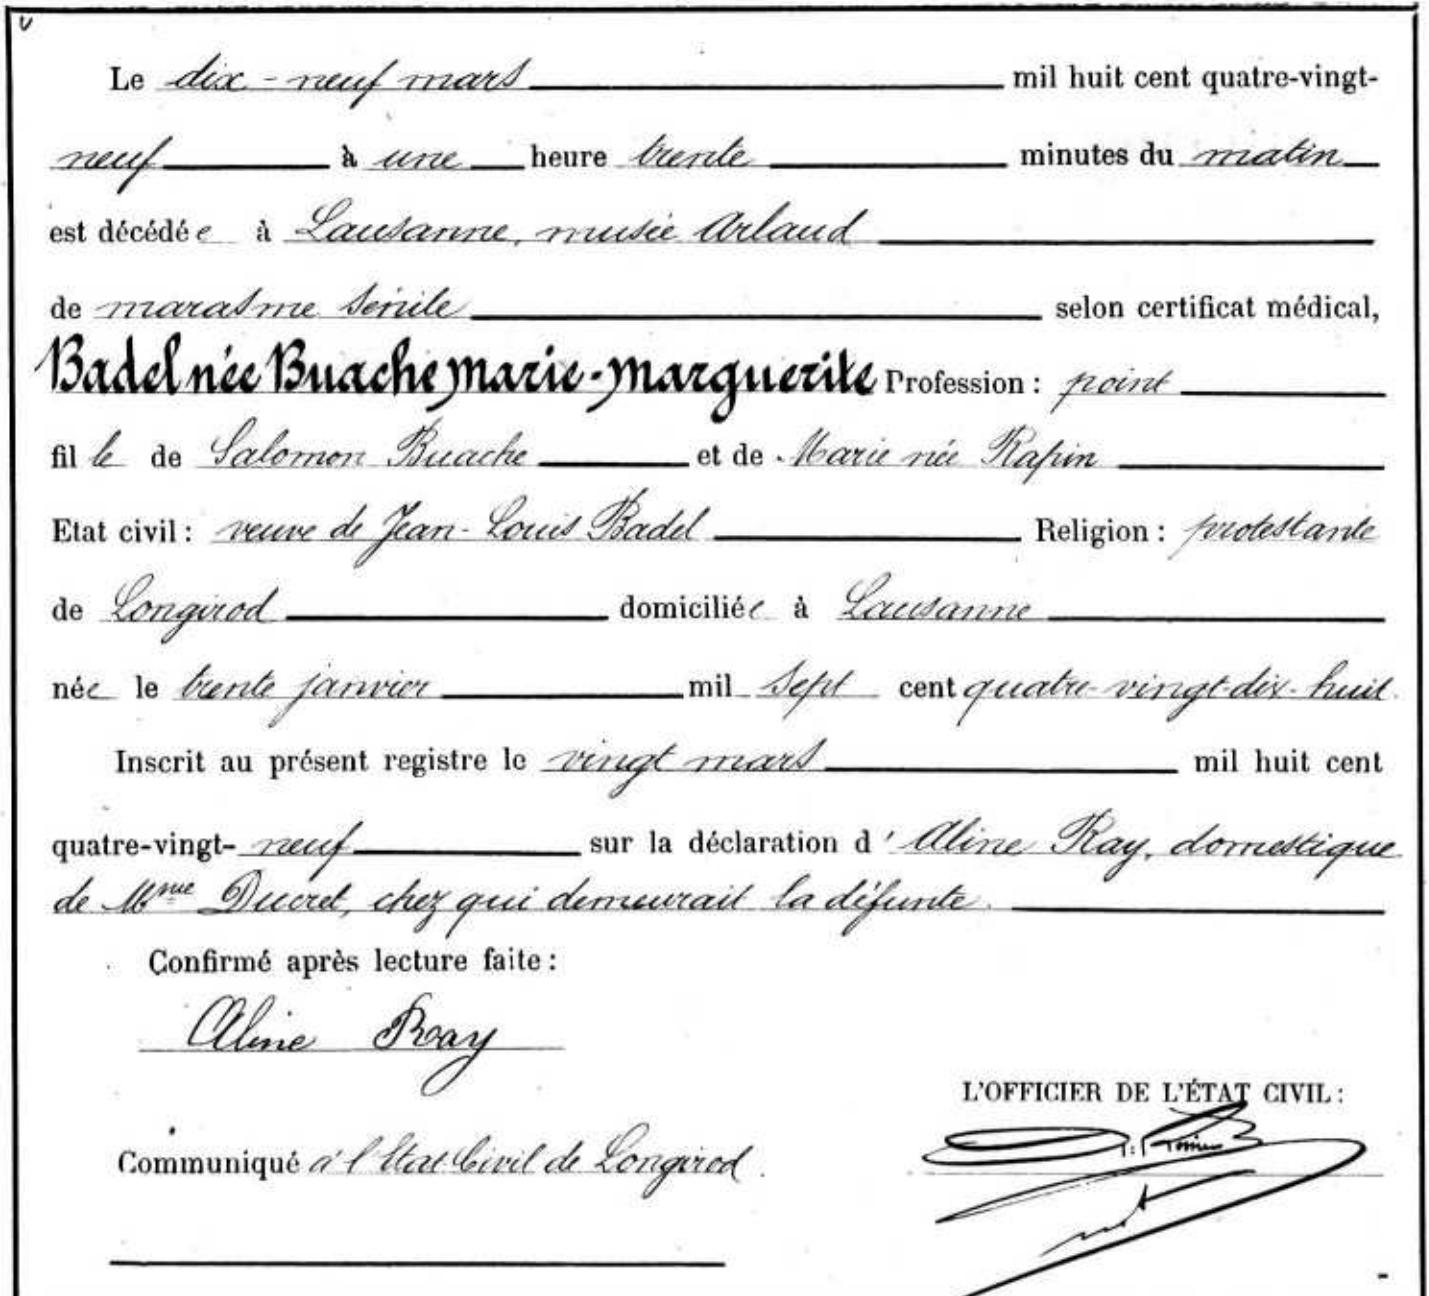 Le dix-neuf mars mil huit cent quatre-vingt-
neuf à une heure trente minutes du matin
est décédée à Lausanne, musée Arlaud
de marasme sénile selon certificat médical,
Badel née Buache Marie-Marguerite Profession : point
fille de Salomon Buache et de Marie née Rapin
Etat civil : veuve de Jean-Louis Badel Religion : protestante
de Longirod domiciliée à Lausanne
née le trente janvier mil sept cent quatre-vingt-dix-huit.
Inscrit au présent registre le vingt mars mil huit cent
quatre-vingt-neuf sur la déclaration d'Aline Ray, domestique
de Mme Ducret, chez qui demeurait la défunte.
Confirmé après lecture faite :
Aline Ray
L'OFFICIER DE L'ÉTAT CIVIL :
Communiqué à l'Etat Civil de Longirod.